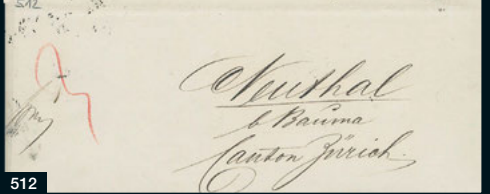 512
Neuthal
b Bauma
Canton Zürich.
512